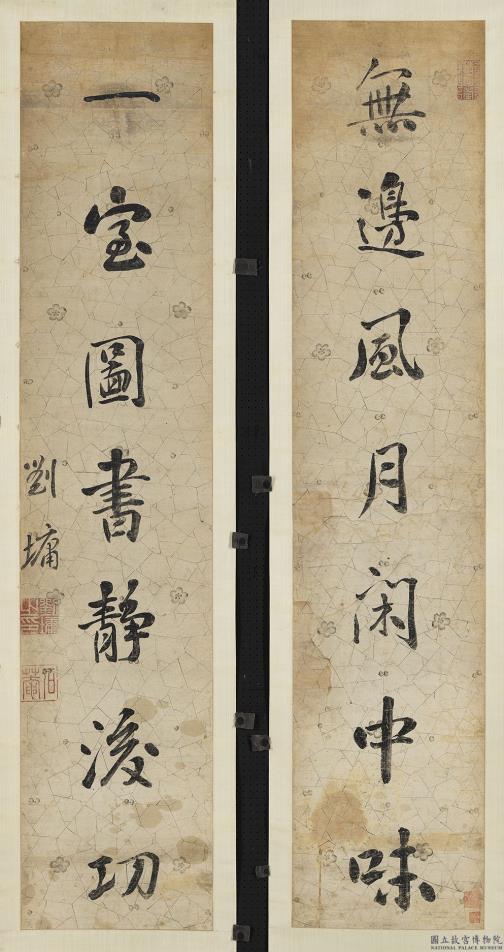 無邊風月閑中味
一室圖書靜後功
劉墉
劉墉之印
石菴
國立故宮博物院
NATIONAL PALACE MUSEUM